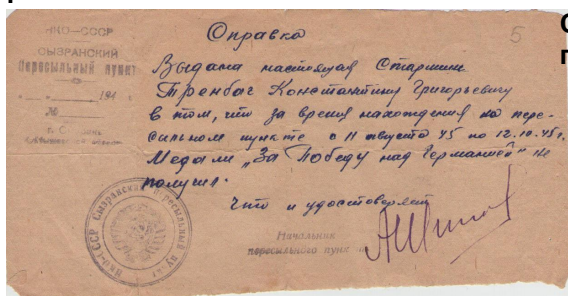 НКО—СССР
СЫЗРАНСКИЙ
Пересыльный пункт
194 г
№
г.
Справка
5
Выдана настоящая Старшин
Тренбач Константину Григорьевичу
в том, что за время нахождения на пере-
сыльном пункте с 11 августа 45 по 12.10.45 г.
Медали „За Победу над Германией" не
получил.
Что и удостоверяет
Начальник
пересыльного пункта
НКО-СССР Сызранский пересыльный пункт